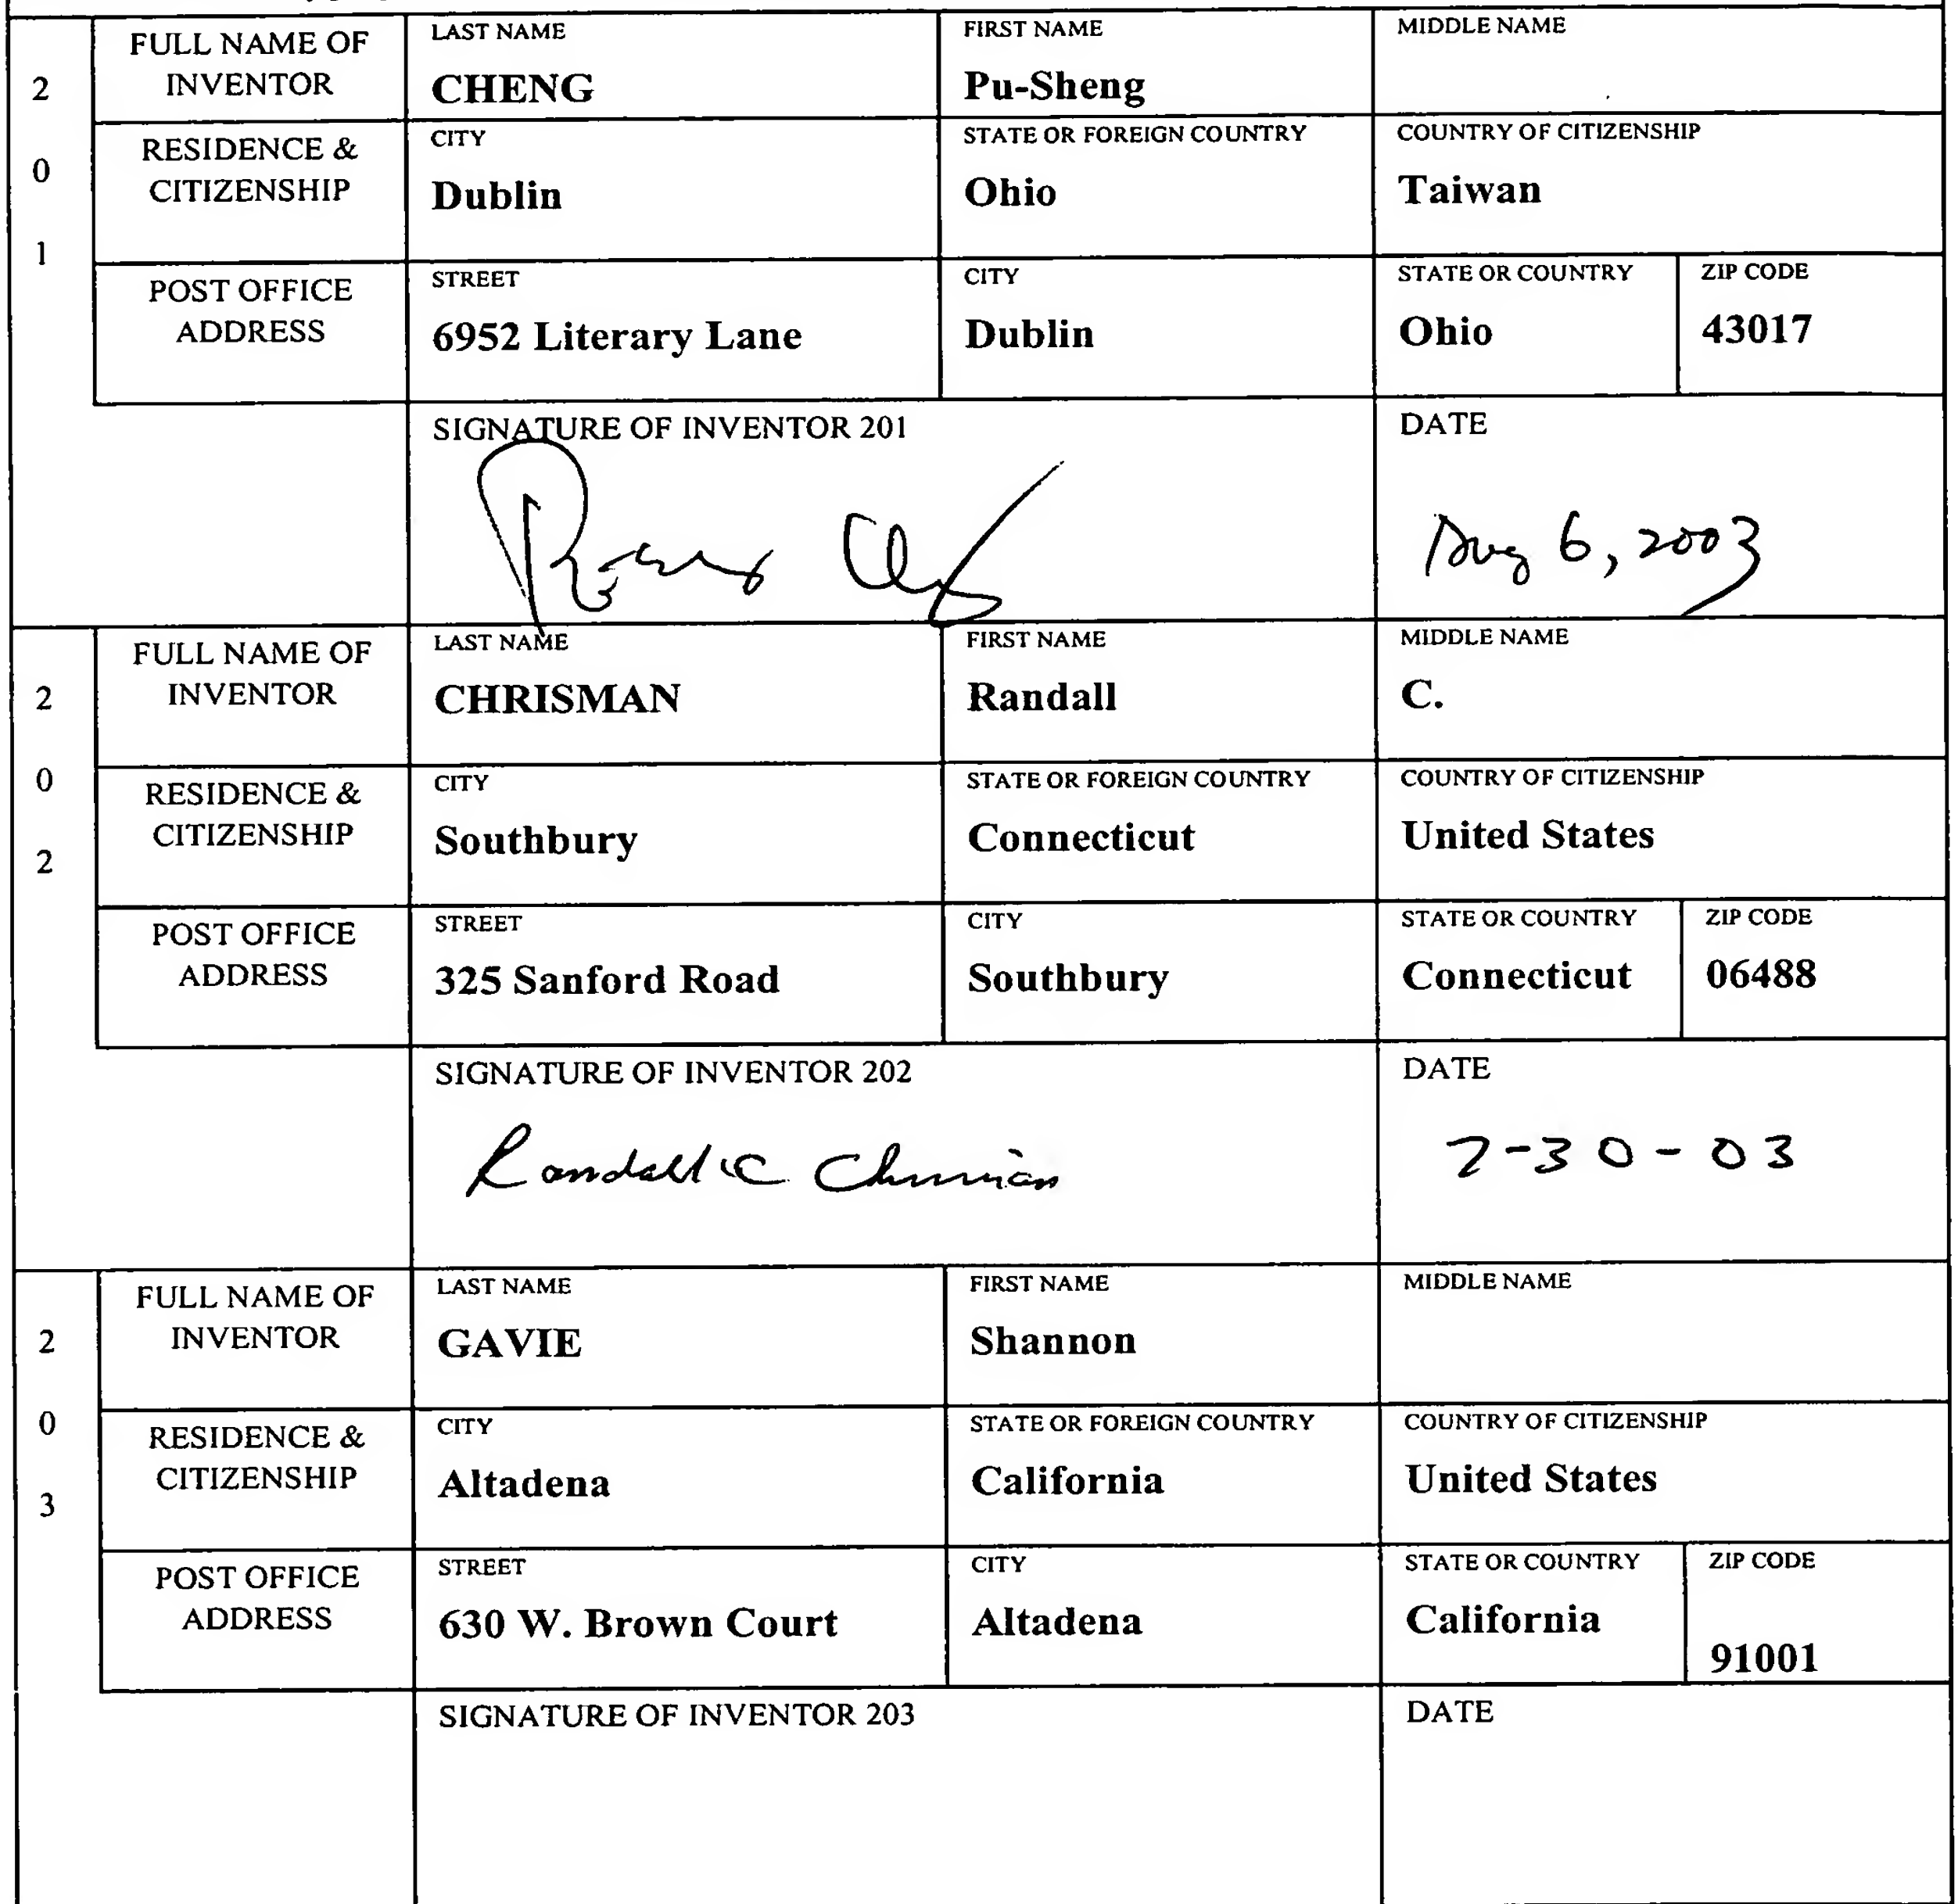 2 0 1
FULL NAME OF INVENTOR
LAST NAME
CHENG
FIRST NAME
Pu-Sheng
MIDDLE NAME
RESIDENCE & CITIZENSHIP
CITY
Dublin
STATE OR FOREIGN COUNTRY
Ohio
COUNTRY OF CITIZENSHIP
Taiwan
POST OFFICE ADDRESS
STREET
6952 Literary Lane
CITY
Dublin
STATE OR COUNTRY
Ohio
ZIP CODE
43017
SIGNATURE OF INVENTOR 201
DATE
Aug 6, 2003
2 0 2
FULL NAME OF INVENTOR
LAST NAME
CHRISMAN
FIRST NAME
Randall
MIDDLE NAME
C.
RESIDENCE & CITIZENSHIP
CITY
Southbury
STATE OR FOREIGN COUNTRY
Connecticut
COUNTRY OF CITIZENSHIP
United States
POST OFFICE ADDRESS
STREET
325 Sanford Road
CITY
Southbury
STATE OR COUNTRY
Connecticut
ZIP CODE
06488
SIGNATURE OF INVENTOR 202
Randall C Chrisman
DATE
7-30-03
2 0 3
FULL NAME OF INVENTOR
LAST NAME
GAVIE
FIRST NAME
Shannon
MIDDLE NAME
RESIDENCE & CITIZENSHIP
CITY
Altadena
STATE OR FOREIGN COUNTRY
California
COUNTRY OF CITIZENSHIP
United States
POST OFFICE ADDRESS
STREET
630 W. Brown Court
CITY
Altadena
STATE OR COUNTRY
California
ZIP CODE
91001
SIGNATURE OF INVENTOR 203
DATE